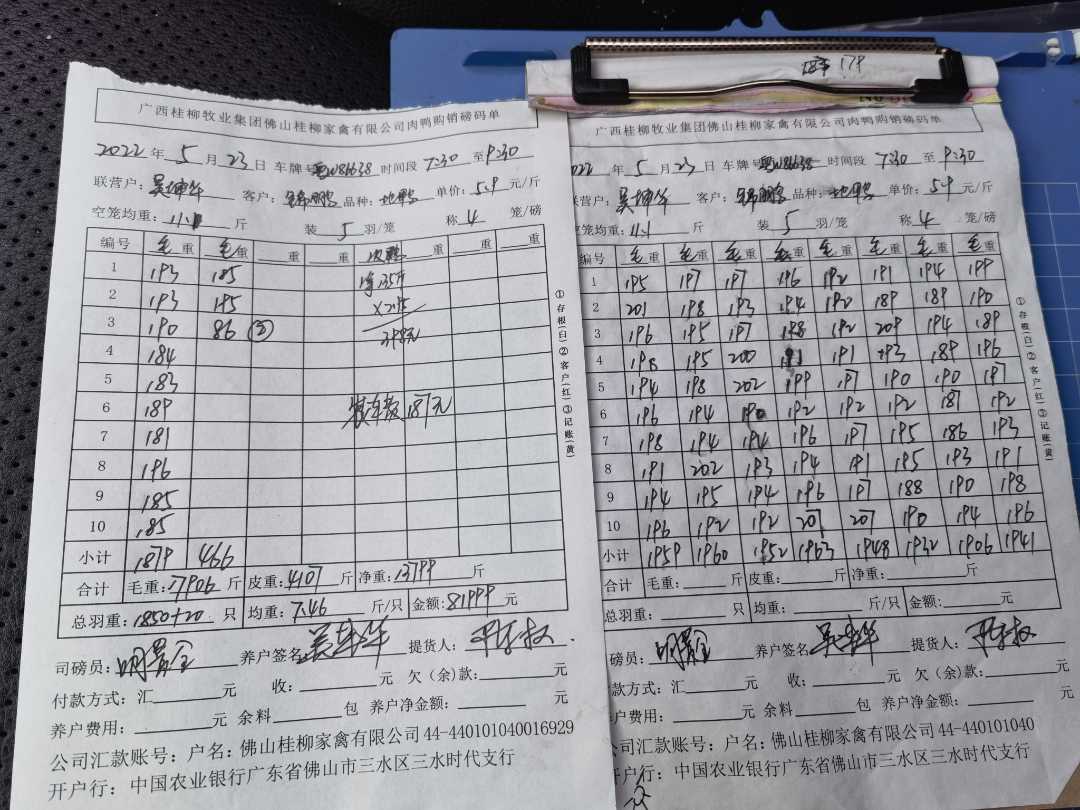 广西桂柳牧业集团佛山桂柳家禽有限公司肉鸭购销磅码单
2022年5月23日 车牌号粤W86638 时间段7:30至9:30
联营户:吴坤华 客户: 品种: 单价:5.9元/斤
空笼均重:11.1斤 装5羽/笼 称4笼/磅
编号 毛重 毛重 重 重 重 重 重
1 193 185
2 193 195 ×
3 190 86 ③
4 184
5 183
6 189 装车费187元
7 181
8 196
9 185
10 185
小计 1879 466
合计 毛重:17906斤 皮重:4107斤 净重:13799斤
总羽重:1850+20只 均重:7.46斤/只 金额:81999元
司磅员: 养户签名 提货人:
付款方式:汇 元 收: 元 欠(余)款: 元
养户费用: 元 余料 包 养户净金额: 元
公司汇款账号:户名:佛山桂柳家禽有限公司44-440101040016929
开户行:中国农业银行广东省佛山市三水区三水时代支行
①存根(白)②客户(红)③记账(黄)
179
广西桂柳牧业集团佛山桂柳家禽有限公司肉鸭购销磅码单
022年5月23日 车牌号粤W86638 时间段7:30至9:30
联营户:吴坤华 客户: 品种: 单价:5.9元/斤
空笼均重:11.1斤 装5羽/笼 称4笼/磅
编号 毛重 毛重 毛重 毛重 毛重 毛重 毛重 毛重
1 195 197 197 196 192 191 194 199
2 201 198 193 194 192 189 189 190
3 196 195 197 198 192 209 194 189
4 198 195 200 191 193 189 196
5 194 198 202 199 197 190 190 197
6 196 194 190 192 192 192 187 192
7 198 194 194 196 197 195 186 193
8 191 202 193 194 191 195 193 191
9 194 195 194 196 197 188 190 198
10 196 192 192 207 207 190 194 196
小计 1959 1960 1952 1963 1948 1932 1906 1941
合计 毛重: 斤 皮重: 斤 净重: 斤
总羽重: 只 均重: 斤/只 金额: 元
磅员: 养户签名 提货人:
款方式:汇 元 收: 元 欠(余)款: 元
户费用: 元 余料 包 养户净金额: 元
公司汇款账号:户名:佛山桂柳家禽有限公司44-440101040
开户行:中国农业银行广东省佛山市三水区三水时代支行
①存根(白)②客户(红)③记账(黄)